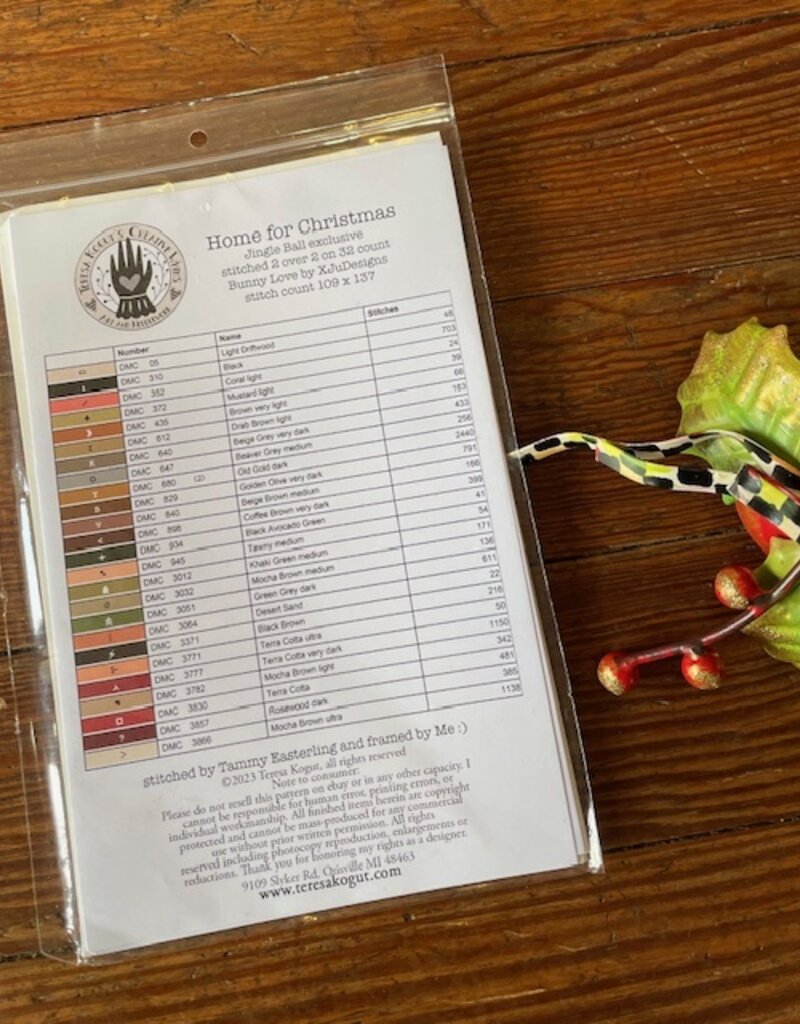 TERESA KOGUT'S CREATIVE LIVES
ART AND
Home for Christmas
Jingle Ball exclusive
stitched 2 over 2 on 32 count
Bunny Love by XJuDesigns
stitch count 109 x 137
Number Name Stitches
DMC 05 Light Driftwood 48
DMC 310 Black 703
DMC 352 Coral light 24
DMC 372 Mustard light 39
DMC 435 Brown very light 66
DMC 612 Drab Brown light
DMC 640 Beige Grey very dark 433
DMC 647 Beaver Grey medium 256
DMC 680 (2) Old Gold dark 2440
DMC 829 Golden Olive very dark 791
DMC 840 Beige Brown medium 166
DMC 898 Coffee Brown very dark 399
DMC 934 Black Avocado Green 41
DMC 945 Tawny medium 54
DMC 3012 Khaki Green medium 171
DMC 3032 Mocha Brown medium 136
DMC 3051 Green Grey dark 611
DMC 3064 Desert Sand 22
DMC 3371 Black Brown 216
DMC 3771 Terra Cotta ultra 50
DMC 3777 Terra Cotta very dark 1150
DMC 3782 Mocha Brown light 342
DMC 3830 Terra Cotta 481
DMC 3857 Rosewood dark 385
DMC 3866 Mocha Brown ultra 1138
stitched by Tammy Easterling and framed by Me :)
©2023 Teresa Kogut, all rights reserved
Note to consumer:
Please do not resell this pattern on ebay or in any other capacity. I
cannot be responsible for human error, printing errors, or
individual workmanship. All finished items herein are copyright
protected and cannot be mass-produced for any commercial
use without prior written permission. All rights
reserved including photocopy reproduction, enlargements or
reductions. Thank you for honoring my rights as a designer.
9109 Slyker Rd, Otisville MI 48463
www.teresakogut.com